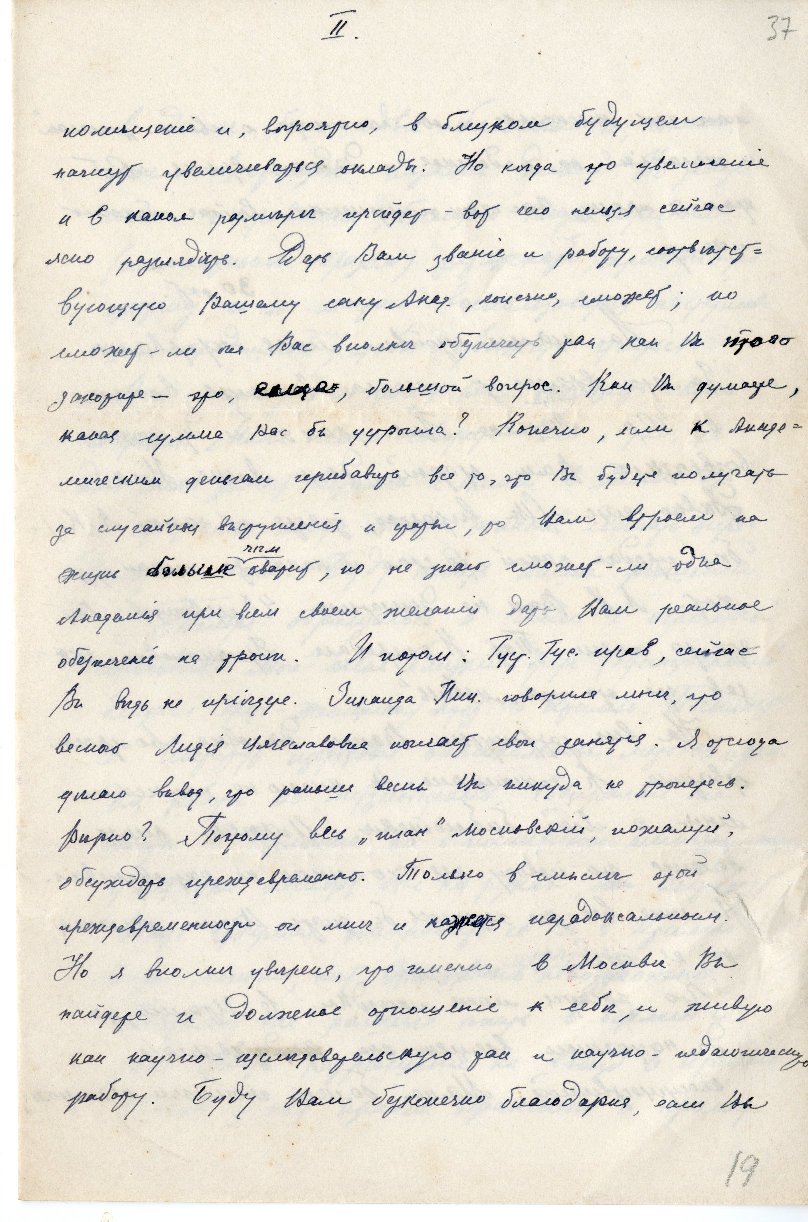 II.
37
помѣщеніе и, вѣроятно, в близком будущем
начнут увеличиваться оклады. Но когда это увеличеніе
и в каком размѣрѣ прійдет – вот чего нельзя сейчас
ясно разглядѣть. Дать Вам званіе и работу, соотвѣтст=
вующую Вашему сану Акад., конечно, сможет; но
сможет-ли она Вас вполнѣ обезпечить так как Вы этого
захотите – это, большой вопрос. Как Вы думаете,
какая сумма Вас бы устроила? Конечно, если к Акаде=
мическим деньгам прибавить все то, что Вы будете получать
за случайныя выступленія и статьи, то Вам втроем на
жизнь больше чѣм хватит, но не знаю сможет-ли одна
Академія при всем своем желаніи дать Вам реальное
обезпеченіе на троих. И потом: Гус. прав, сейчас
Вы вѣдь не пріѣдете. Зинаида Ник. говорила мнѣ, что
весной Лидія Вячеславовна кончает свои занятія. Я отсюда
дѣлаю вывод, что раньше весны Вы никуда не тронетесь.
Вѣрно? Потому весь „план" Московскій, пожалуй,
обсуждать преждевременно. Только в смыслѣ этой
преждевременности он мнѣ и кажется парадоксальным.
Но я вполнѣ увѣрена, что именно в Москвѣ Вы
найдете и должное отношеніе к себѣ, и живую
как научно-изслѣдовательскую так и научно-педагогическую
работу. Буду Вам безконечно благодарна, если Вы
19